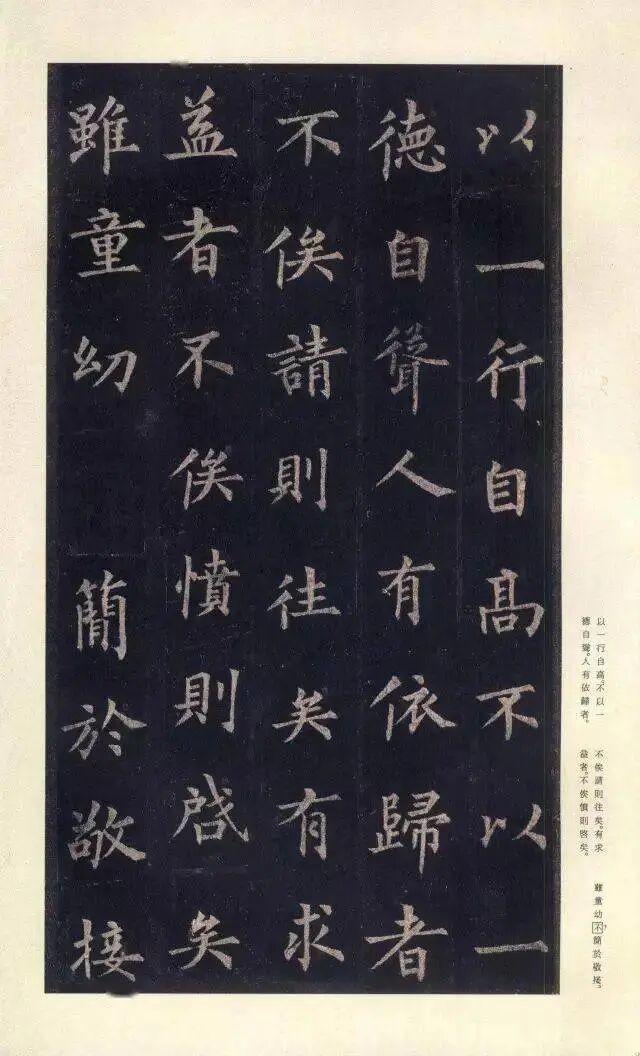 以一行自髙不以一
徳自聳人有依歸者
不俟請則往矣有求
益者不俟憤則啓矣
雖童幼 簡於敬接
以一行自高。不以一
德自聳。人有依歸者。
不俟請則往矣。有求
益者。不俟憤則啓矣。
雖童幼不簡於敬接。